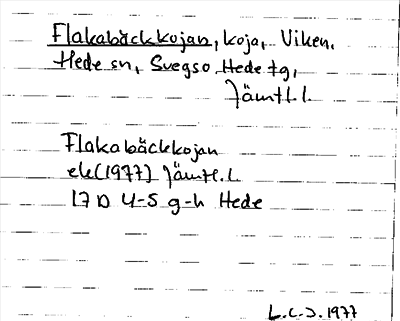 Flakabäckkojan, koja, Viken,
Hede sn, Svegso Hede tg,
Jämtl. l.
Flakabäckkojan
ek (1977) Jämtl. l
17 D 4-5 g-h Hede
L.C.J. 1977